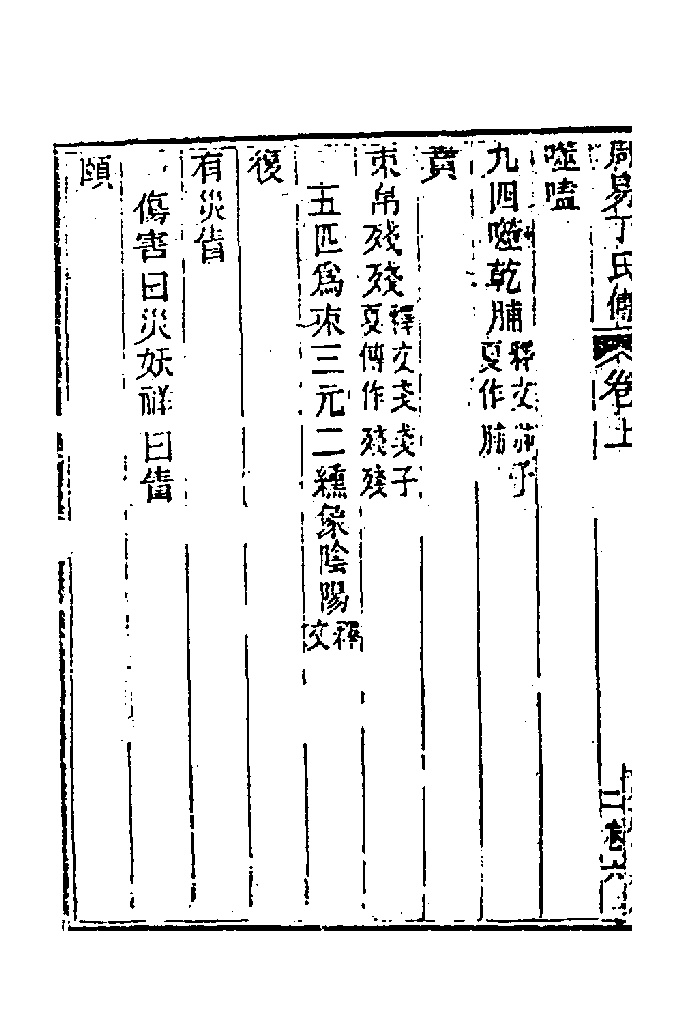 周易丁氏傳　卷上
噬嗑
九四噬乾脯釋文莃子夏作脯
賁
束帛殘殘釋文戔戔子夏傳作殘殘
五匹爲束三元二纁象陰陽釋文
復
有災眚
傷害曰災妖祥曰眚
頤
二　卷六